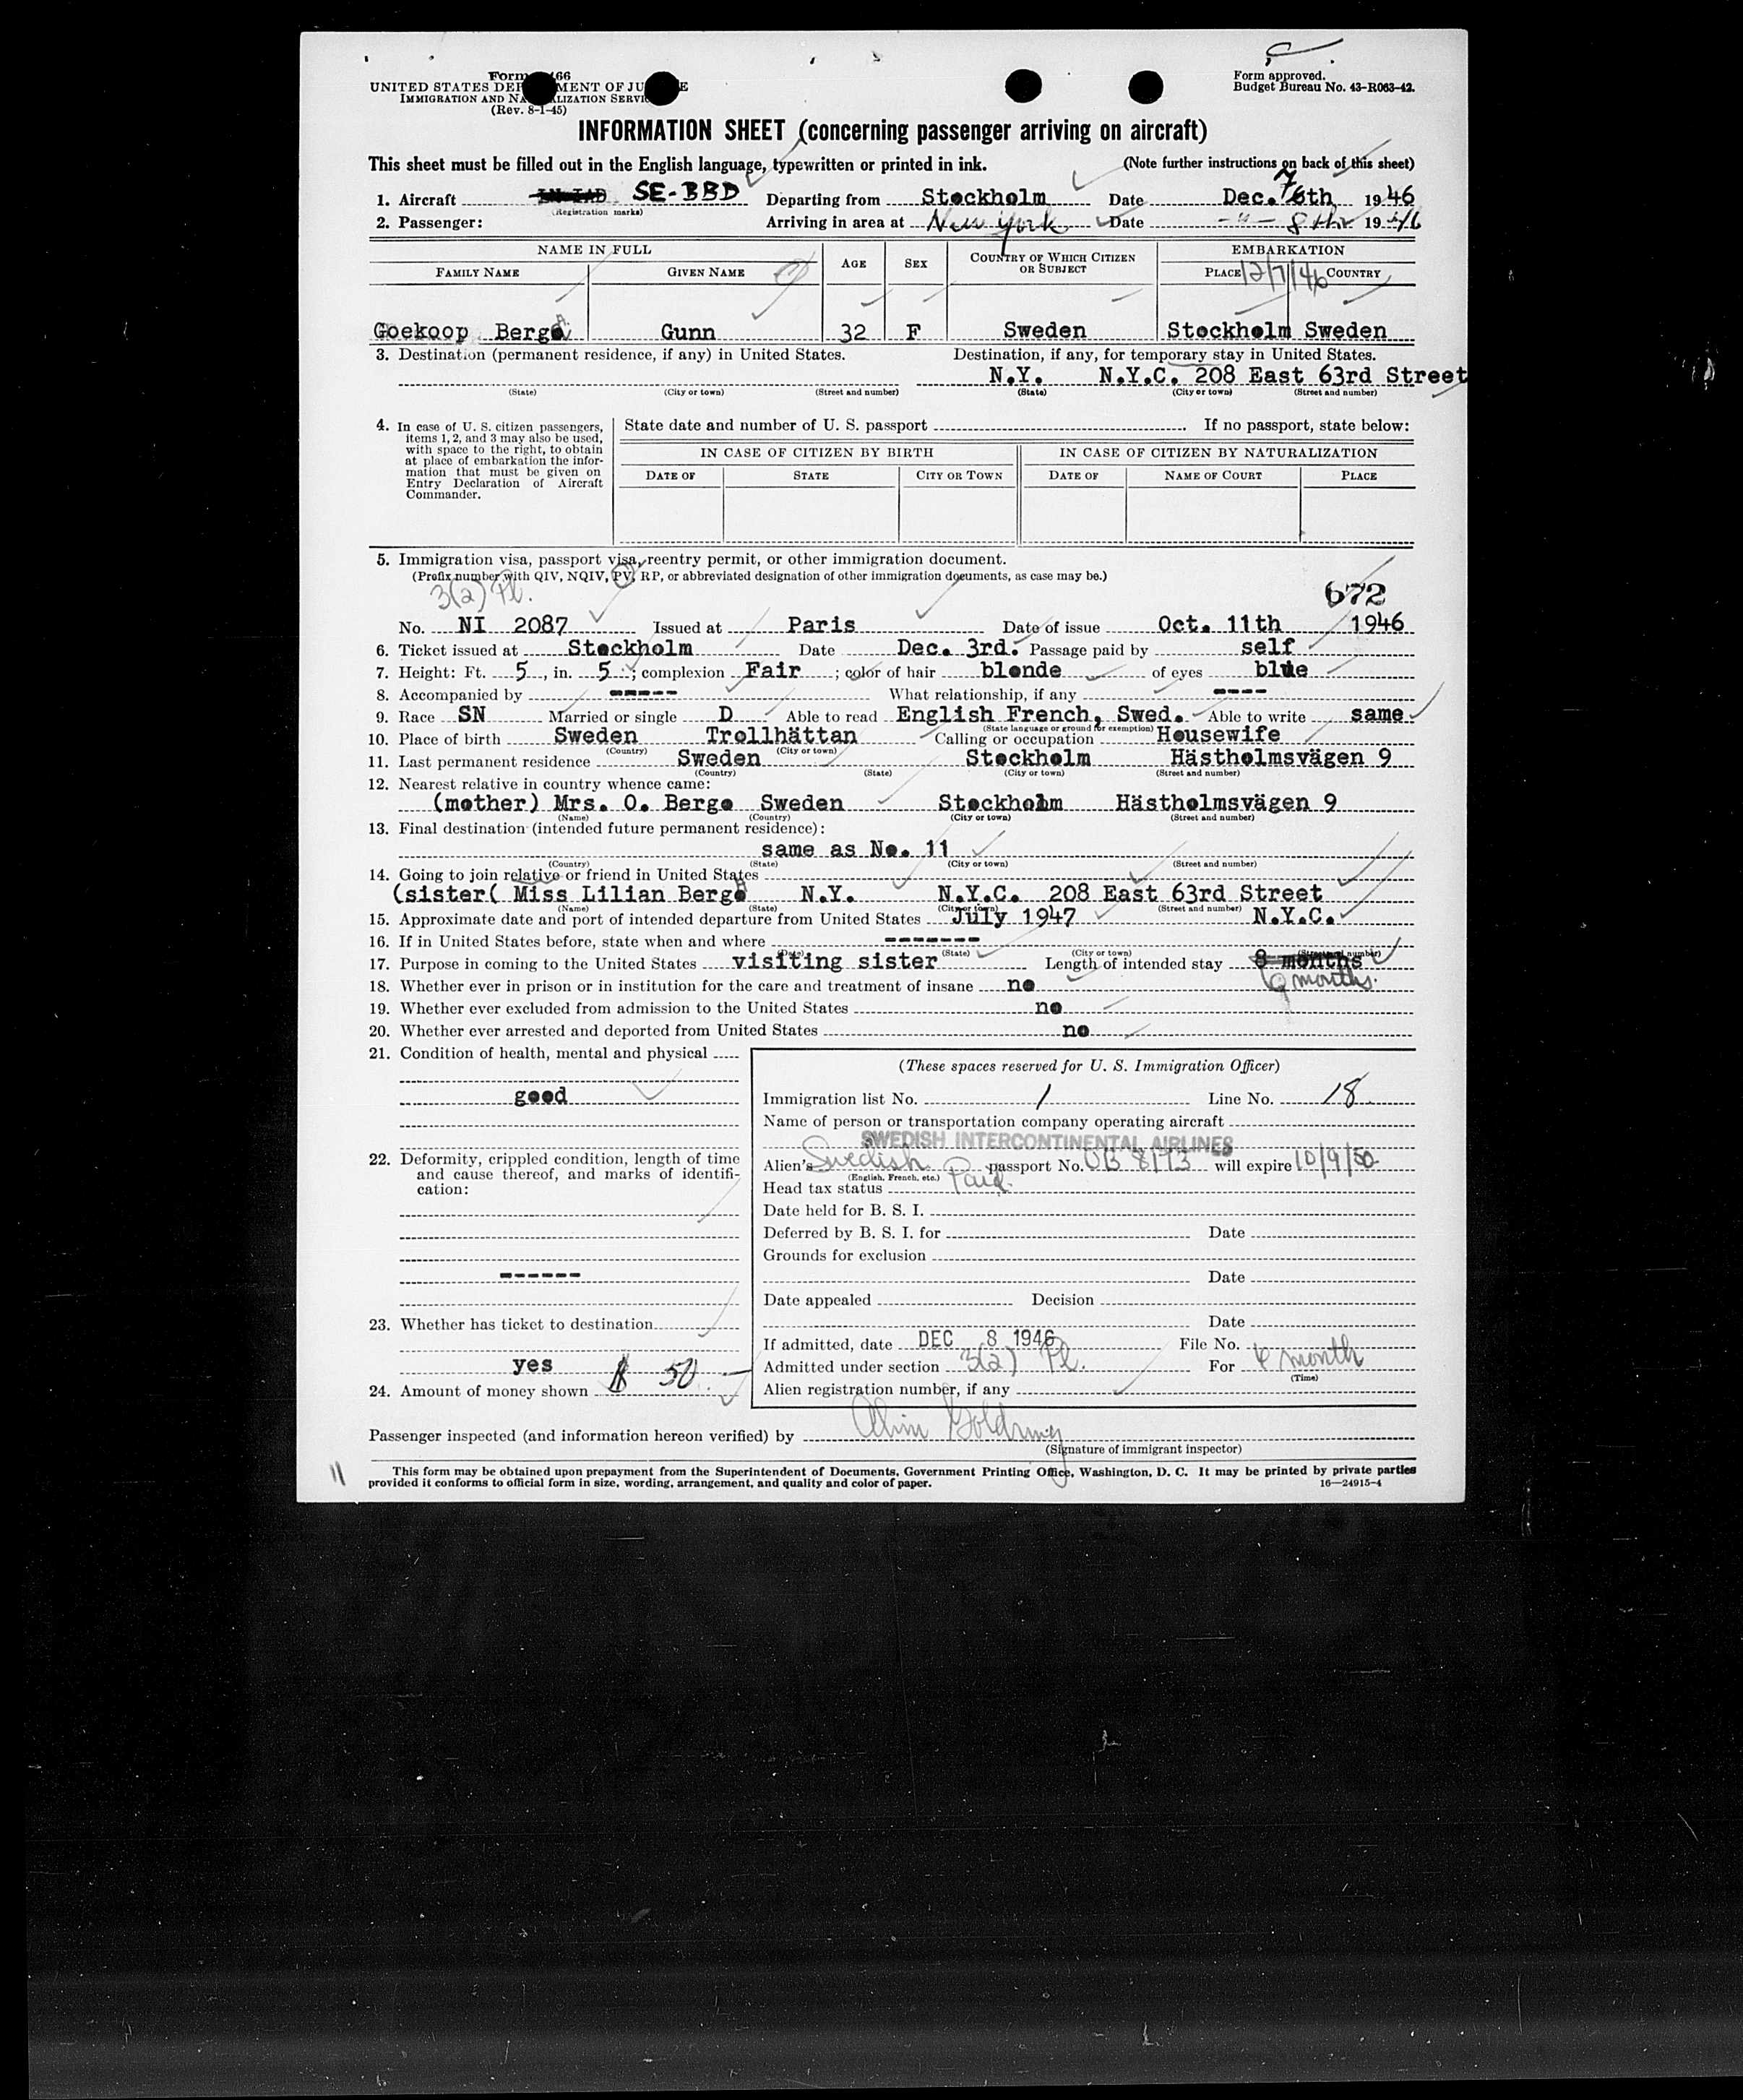 Form 466
UNITED STATES DEPARTMENT OF JUSTICE
IMMIGRATION AND NATURALIZATION SERVICE
(Rev. 8-1-45)
Form approved.
Budget Bureau No. 43-R063-42.
INFORMATION SHEET (concerning passenger arriving on aircraft)
This sheet must be filled out in the English language, typewritten or printed in ink. (Note further instructions on back of this sheet)
1. Aircraft SE-BBD Departing from Stockholm Date Dec. 7 6th 1946
(Registration marks)
2. Passenger: Arriving in area at New York Date -"- 8th 1946
NAME IN FULL AGE SEX COUNTRY OF WHICH CITIZEN OR SUBJECT EMBARKATION
FAMILY NAME GIVEN NAME PLACE 12/7/46 COUNTRY
Goekoop Bergo Gunn 32 F Sweden Stockholm Sweden
3. Destination (permanent residence, if any) in United States. Destination, if any, for temporary stay in United States.
N.Y. N.Y.C. 208 East 63rd Street
(State) (City or town) (Street and number) (State) (City or town) (Street and number)
4. In case of U. S. citizen passengers, items 1, 2, and 3 may also be used, with space to the right, to obtain at place of embarkation the information that must be given on Entry Declaration of Aircraft Commander.
State date and number of U. S. passport If no passport, state below:
IN CASE OF CITIZEN BY BIRTH IN CASE OF CITIZEN BY NATURALIZATION
DATE OF STATE CITY OR TOWN DATE OF NAME OF COURT PLACE
5. Immigration visa, passport visa, reentry permit, or other immigration document.
(Prefix number with QIV, NQIV, PV, RP, or abbreviated designation of other immigration documents, as case may be.)
3(2) Pl. 672
No. NI 2087 Issued at Paris Date of issue Oct. 11th 1946
6. Ticket issued at Stockholm Date Dec. 3rd. Passage paid by self
7. Height: Ft. 5, in. 5; complexion Fair; color of hair blonde of eyes blue
8. Accompanied by ----- What relationship, if any ----
9. Race SN Married or single D Able to read English French, Swed. Able to write same
(State language or ground for exemption)
10. Place of birth Sweden Trollhättan Calling or occupation Housewife
(Country) (City or town)
11. Last permanent residence Sweden Stockholm Hästholmsvägen 9
(Country) (State) (City or town) (Street and number)
12. Nearest relative in country whence came:
(mother) Mrs. O. Bergo Sweden Stockholm Hästholmsvägen 9
(Name) (Country) (City or town) (Street and number)
13. Final destination (intended future permanent residence):
same as No. 11
(Country) (State) (City or town) (Street and number)
14. Going to join relative or friend in United States
(sister( Miss Lilian Bergo N.Y. N.Y.C. 208 East 63rd Street
(Name) (State) (City or town) (Street and number)
15. Approximate date and port of intended departure from United States July 1947 N.Y.C.
16. If in United States before, state when and where -------
(Date) (State) (City or town) (Street and number)
17. Purpose in coming to the United States visiting sister Length of intended stay 8 months
6 months.
18. Whether ever in prison or in institution for the care and treatment of insane no
19. Whether ever excluded from admission to the United States no
20. Whether ever arrested and deported from United States no
21. Condition of health, mental and physical
good
22. Deformity, crippled condition, length of time and cause thereof, and marks of identification:
------
23. Whether has ticket to destination
yes
24. Amount of money shown $ 50
(These spaces reserved for U. S. Immigration Officer)
Immigration list No. 1 Line No. 18
Name of person or transportation company operating aircraft
SWEDISH INTERCONTINENTAL AIRLINES
Alien's Swedish passport No. UB 8173 will expire 10/9/50
(English, French, etc.)
Head tax status Paid
Date held for B. S. I.
Deferred by B. S. I. for Date
Grounds for exclusion
Date
Date appealed Decision
Date
If admitted, date DEC 8 1946 File No.
Admitted under section 3(2) Pl. For 6 month
(Time)
Alien registration number, if any
Passenger inspected (and information hereon verified) by
(Signature of immigrant inspector)
11
This form may be obtained upon prepayment from the Superintendent of Documents, Government Printing Office, Washington, D. C. It may be printed by private parties
provided it conforms to official form in size, wording, arrangement, and quality and color of paper. 16—24915-4